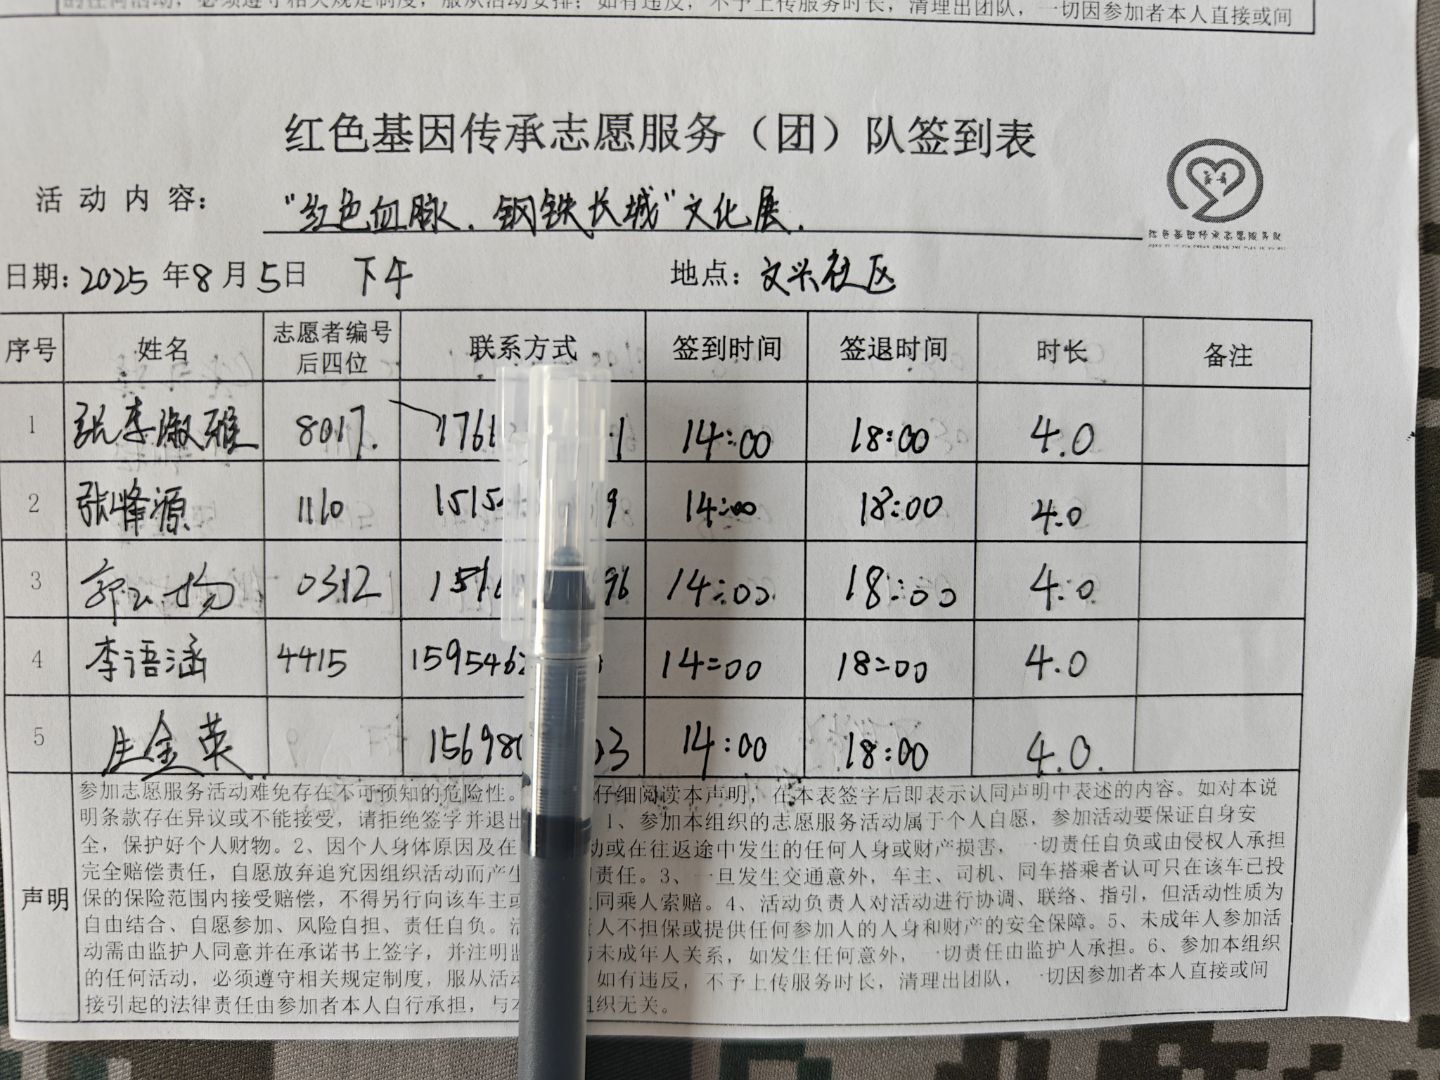 的任何活动，必须遵守相关规定制度，服从活动安排；如有违反，不予上传服务时长，清理出团队，一切因参加者本人直接或间
红色基因传承志愿服务（团）队签到表
活动内容：“红色血脉.钢铁长城”文化展.
红色基因传承志愿服务队
日期：2025年8月5日 下午 地点：文兴社区
序号 姓名 志愿者编号后四位 联系方式 签到时间 签退时间 时长 备注
1 张李淑雅 8017. 1761 1 14:00 18:00 4.0
2 张峰源 1110 1515 9 14:00 18:00 4.0
3 0312 151 96 14:00 18:00 4.0
4 李语涵 4415 1595462 14:00 18:00 4.0
5 庄金英 15698 03 14:00 18:00 4.0.
声明
参加志愿服务活动难免存在不可预知的危险性。 仔细阅读本声明，在本表签字后即表示认同声明中表述的内容。如对本说
明条款存在异议或不能接受，请拒绝签字并退出 1、参加本组织的志愿服务活动属于个人自愿，参加活动要保证自身安
全，保护好个人财物。2、因个人身体原因及在 动或在往返途中发生的任何人身或财产损害，一切责任自负或由侵权人承担
完全赔偿责任，自愿放弃追究因组织活动而产生 责任。3、一旦发生交通意外，车主、司机、同车搭乘者认可只在该车已投
保的保险范围内接受赔偿，不得另行向该车主或 同乘人索赔。4、活动负责人对活动进行协调、联络、指引，但活动性质为
自由结合、自愿参加、风险自担、责任自负。活 人不担保或提供任何参加人的人身和财产的安全保障。5、未成年人参加活
动需由监护人同意并在承诺书上签字，并注明监 与未成年人关系，如发生任何意外，一切责任由监护人承担。6、参加本组织
的任何活动，必须遵守相关规定制度，服从活动 如有违反，不予上传服务时长，清理出团队，一切因参加者本人直接或间
接引起的法律责任由参加者本人自行承担，与本 组织无关。